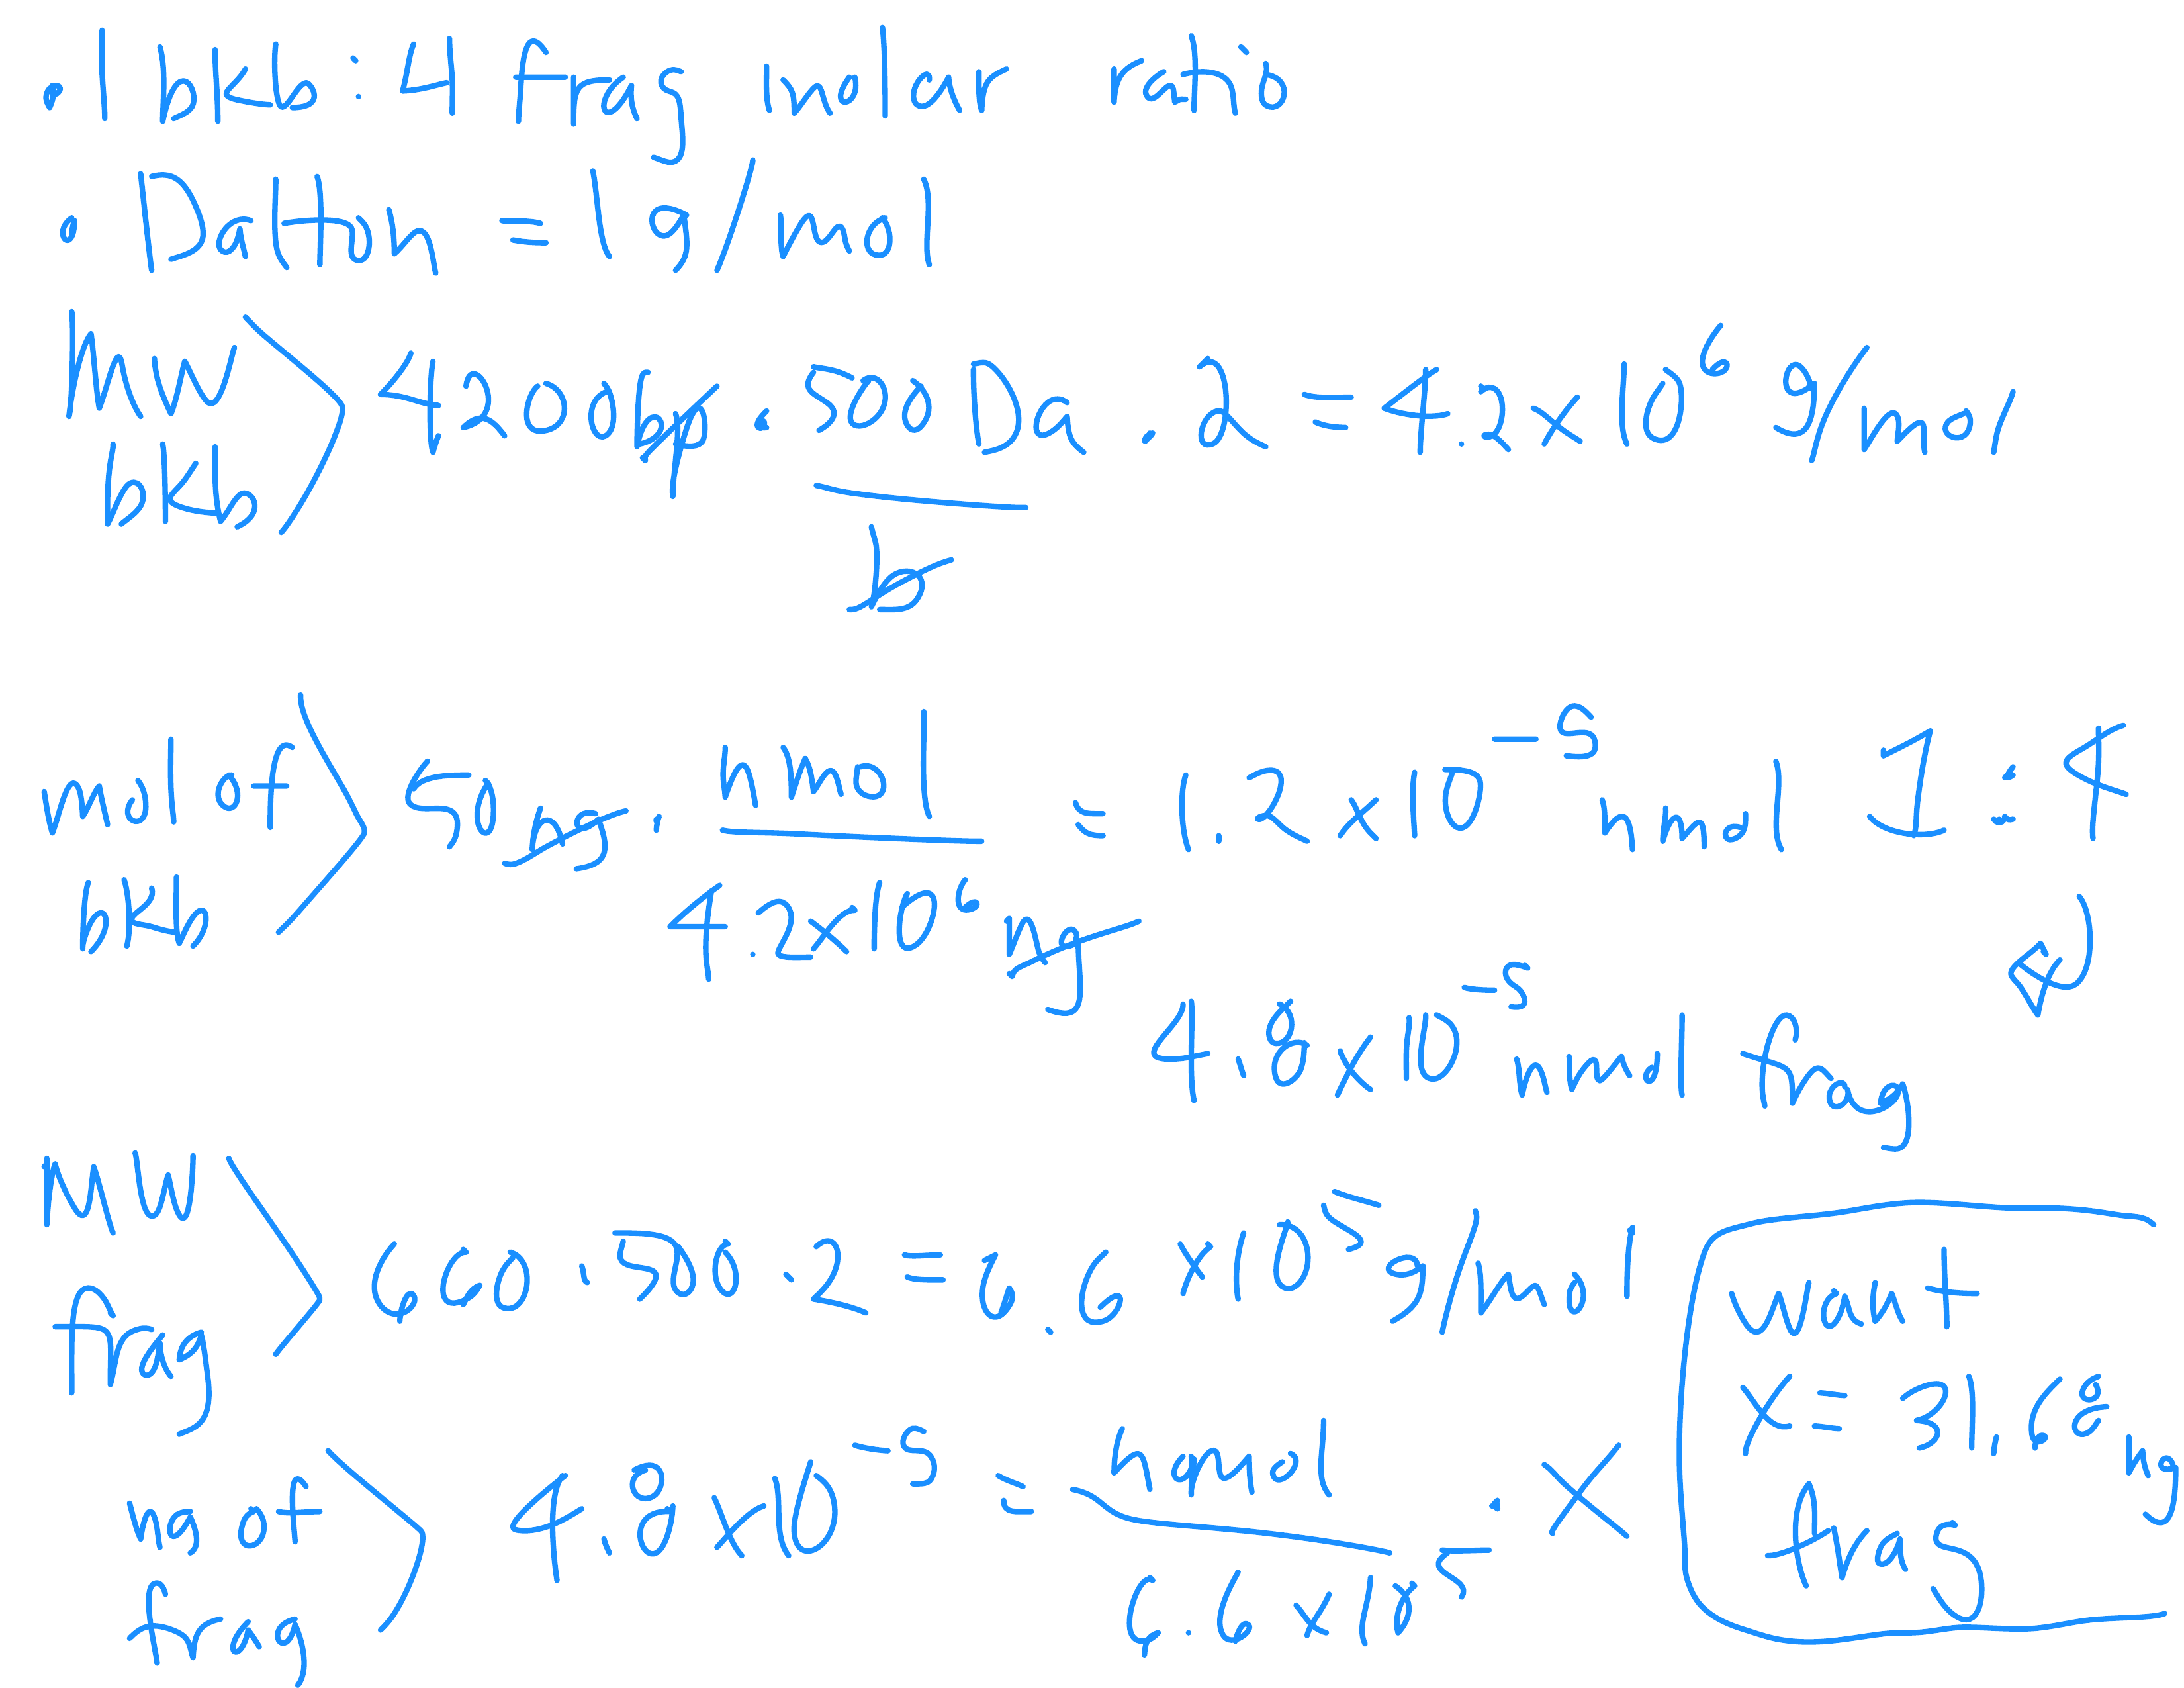 • 1 bkb : 4 frag molar ratio
• Dalton = 1 g/mol
MW bkb > 4200 bp · 500 Da / b · 2 = 4.2 x 10⁶ g/mol
mol of bkb > 50 ng · nmol / 4.2 x 10⁶ ng = 1.2 x 10⁻⁵ nmol 1 : 4
4.8 x 10⁻⁵ nmol frag
MW frag > 660 · 500 · 2 = 6.6 x 10⁵ g/mol
ng of frag > 4.8 x 10⁻⁵ = nmol / 6.6 x 10⁵ · X
want
X = 31.68 ng
frag